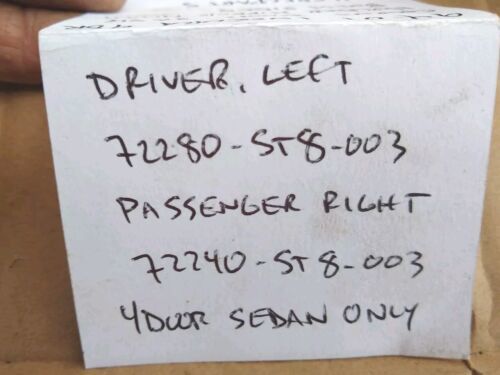 DRIVER, LEFT
72280-ST8-003
PASSENGER RIGHT
72240-ST8-003
4DOOR SEDAN ONLY